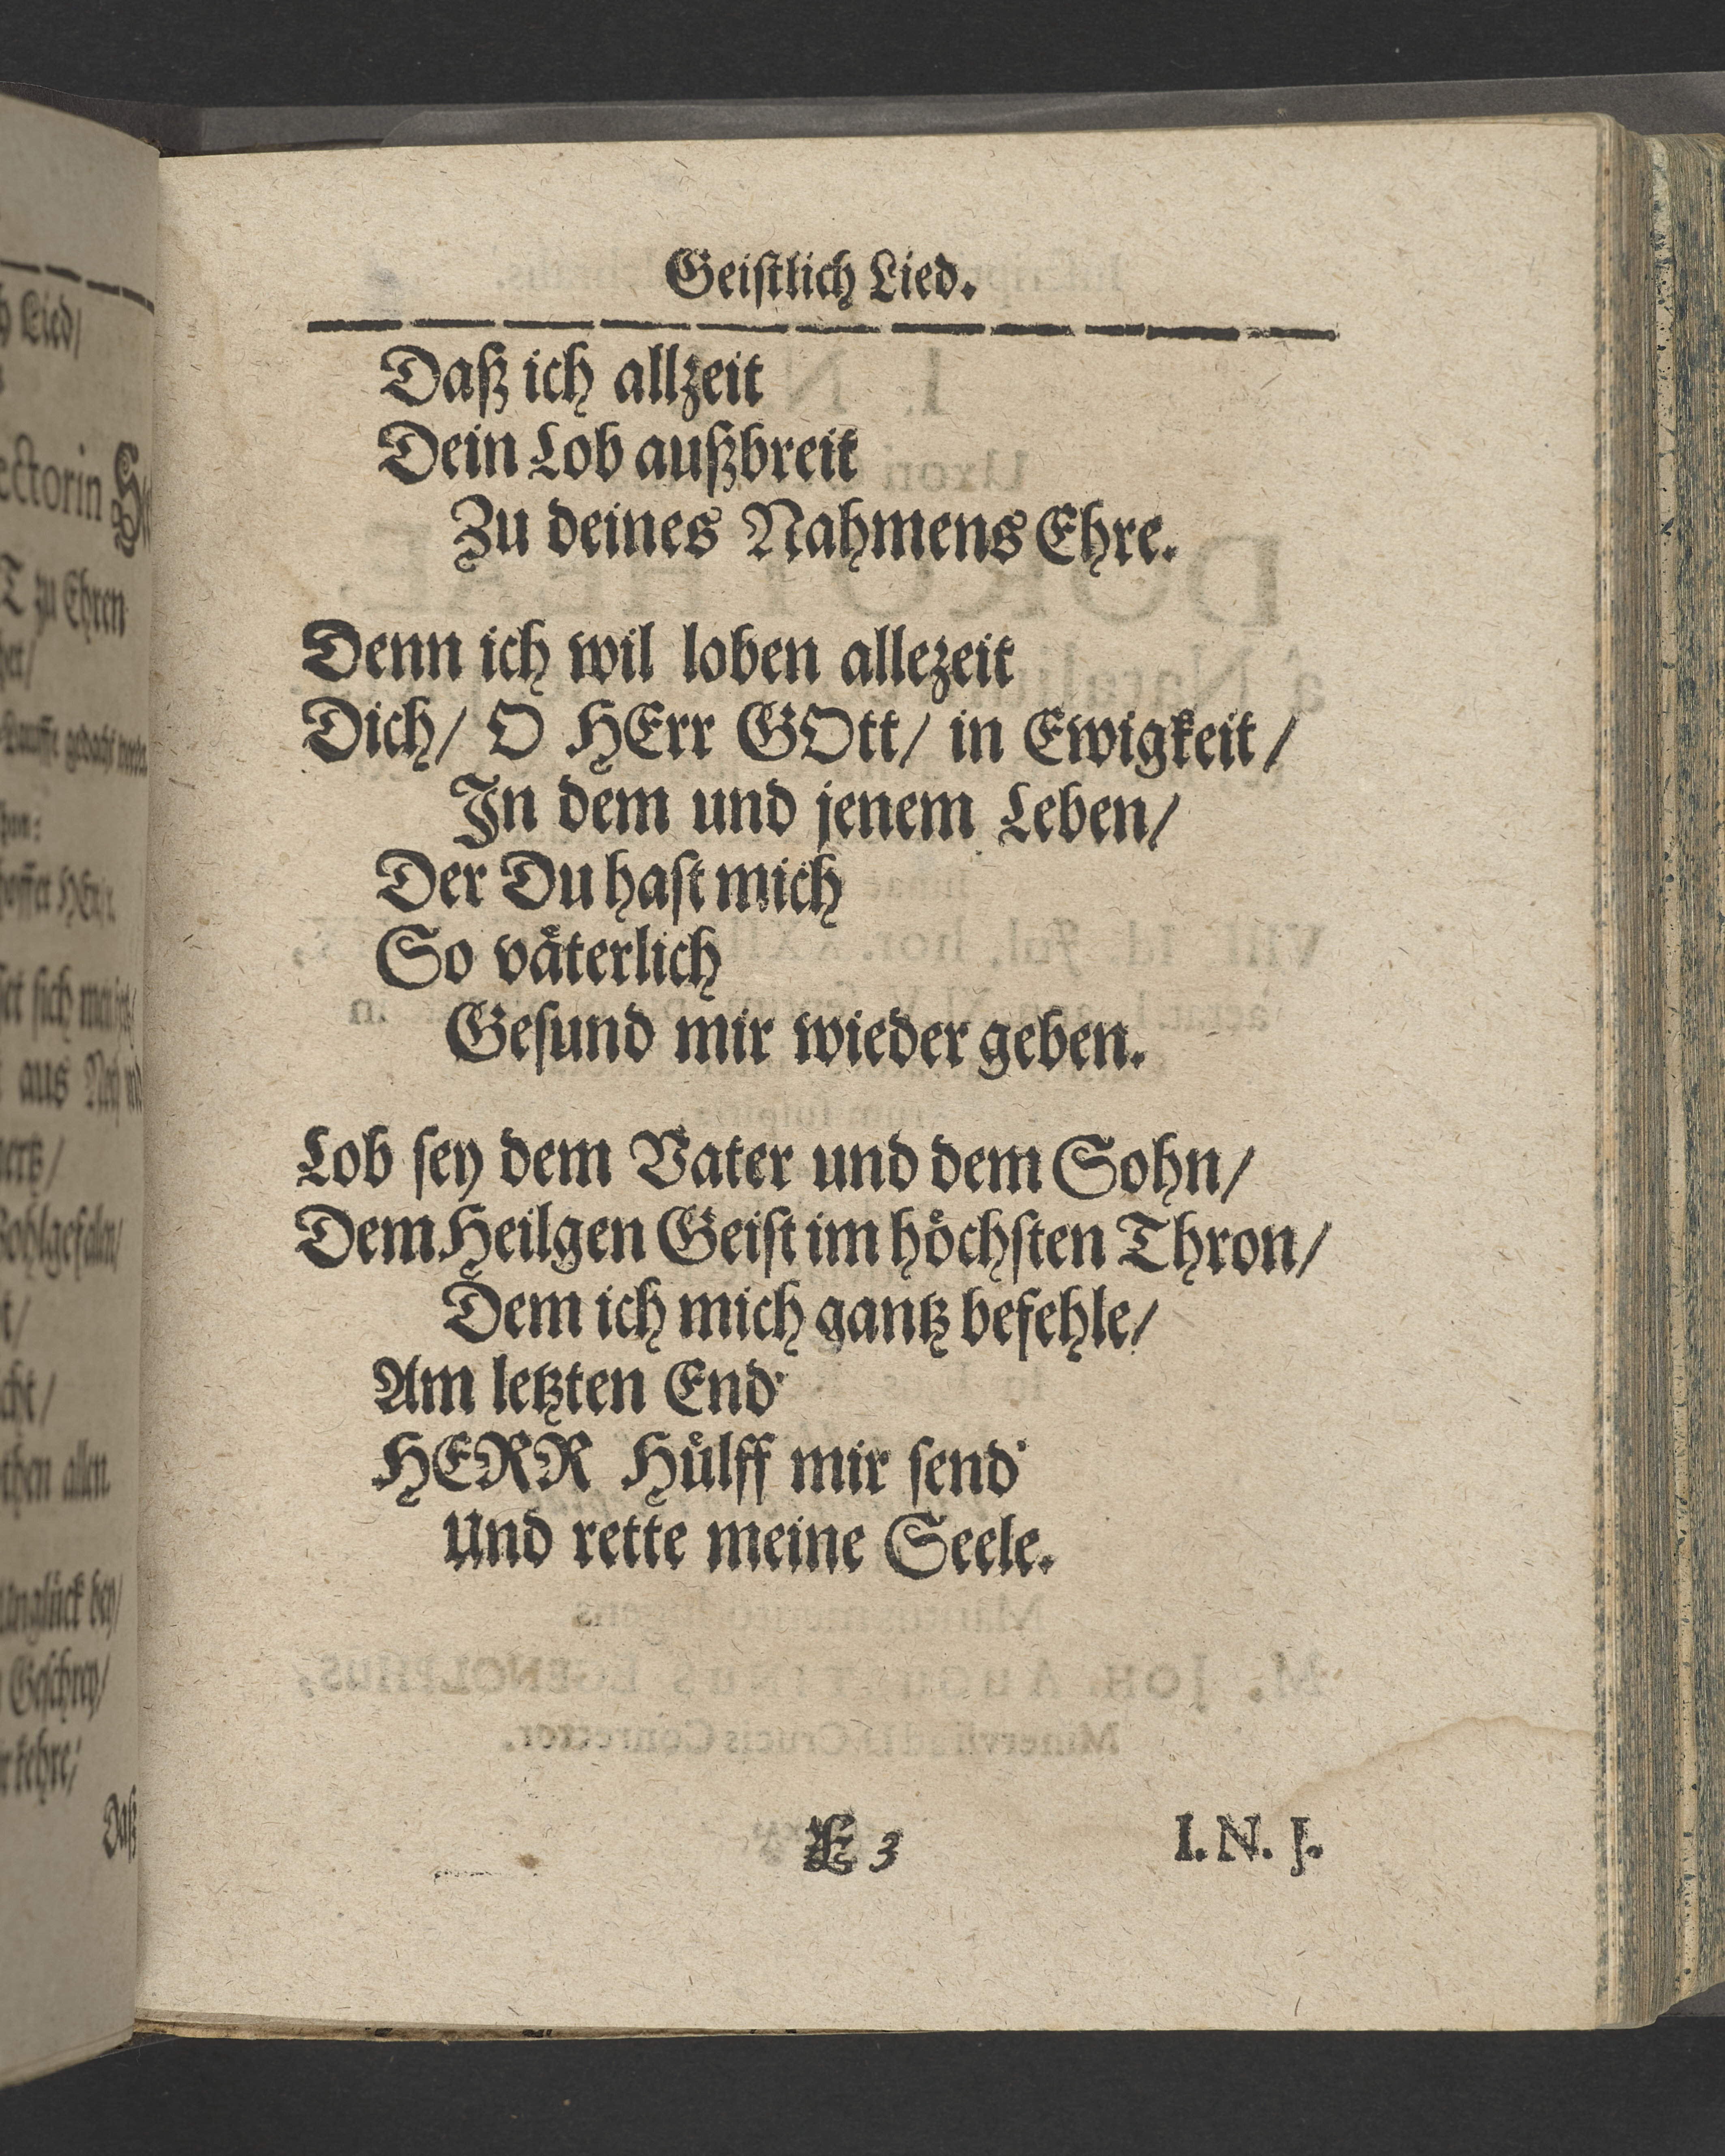 Geistlich Lied.
Daß ich allzeit
Dein Lob außbreit
Zu deines Nahmens Ehre.
Denn ich wil loben allezeit
Dich/ O HErr GOtt/ in Ewigkeit/
In dem und jenem Leben/
Der Du hast mich
So väterlich
Gesund mir wieder geben.
Lob sey dem Vater und dem Sohn/
Dem Heilgen Geist im höchsten Thron/
Dem ich mich gantz befehle/
Am letzten End'
HERR Hülff mir send'
Und rette meine Seele.
E 3
I. N. J.
Lied/
zu Ehren
aus
Unglück bey/
Geschrey/
Daß